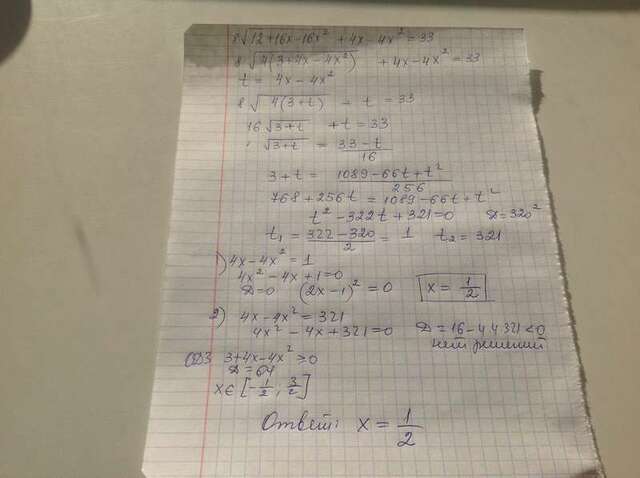 8√12+16x-16x² + 4x-4x² = 33
8√4(3+4x-4x²) + 4x-4x² = 33
t = 4x-4x²
8√4(3+t) + t = 33
16√3+t + t = 33
√3+t = 33-t/16
3+t = 1089-66t+t²/256
768+256t = 1089-66t+t²
t²-322t+321=0 D=320²
t₁ = 322-320/2 = 1 t₂=321
1) 4x-4x²=1
4x²-4x+1=0
D=0 (2x-1)²=0 x=1/2
2) 4x-4x²=321
4x²-4x+321=0 D=16-4·4·321<0
нет решений
ОДЗ 3+4x-4x²≥0
D=64
x∈[-1/2, 3/2]
Ответ: x=1/2